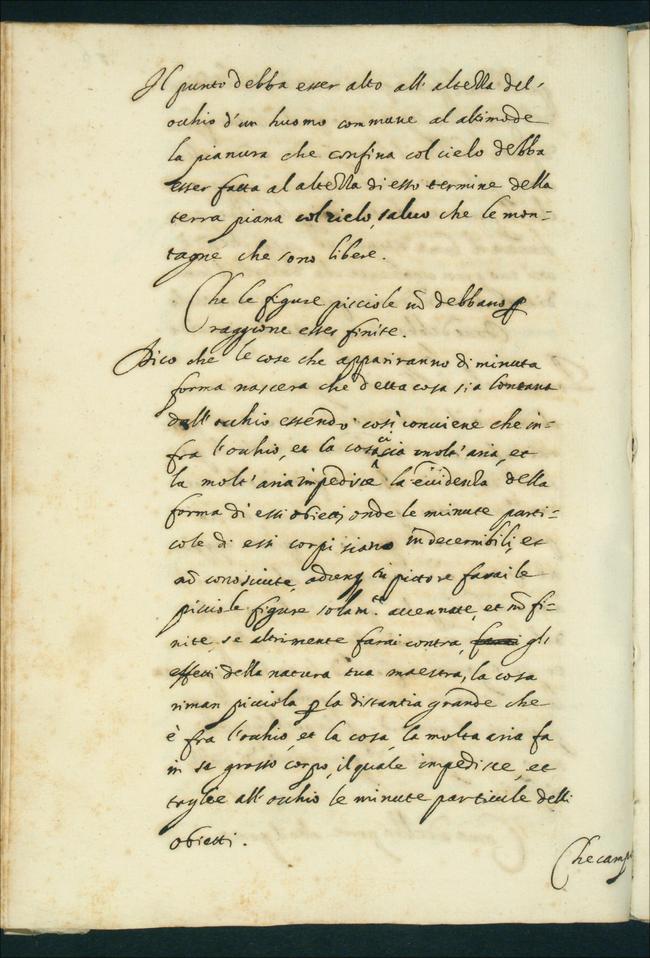 Il punto debba esser alto all' altezza del'
ochio d'un huomo commune al altimode
la pianura che confina col cielo debba
esser fatta al altezza di esso termine della
terra piana col cielo, saluo che le mon-
tagne che sono libere.
Che le figure picciole nõ debbano ꝑ
raggione esser finite.
Dico che le cose che appariranno di minuta
forma nascera che detta cosa sia lontana
dall' occhio essendo così conuiene che in-
fra l'occhio, et la cosa ci sia molt' aria, et
la molt' aria impedisce la euidenza della
forma di essi obietti, onde le minute parti-
cole di essi corpi siano indecernibili, et
nõ conosciute, adunq tu pictore farai le
picciole figure solam.te accennate, et nõ fi-
nite, se altrimente farai contra, farai gli
effetti della natura tua maestra, la cosa
riman picciola ꝑ la distantia grande che
è fra l'occhio, et la cosa, la molta aria fa
in se grosso corpo, il quale impedisce, et
toglie all' occhio le minute particule delli
obietti.
Che camp